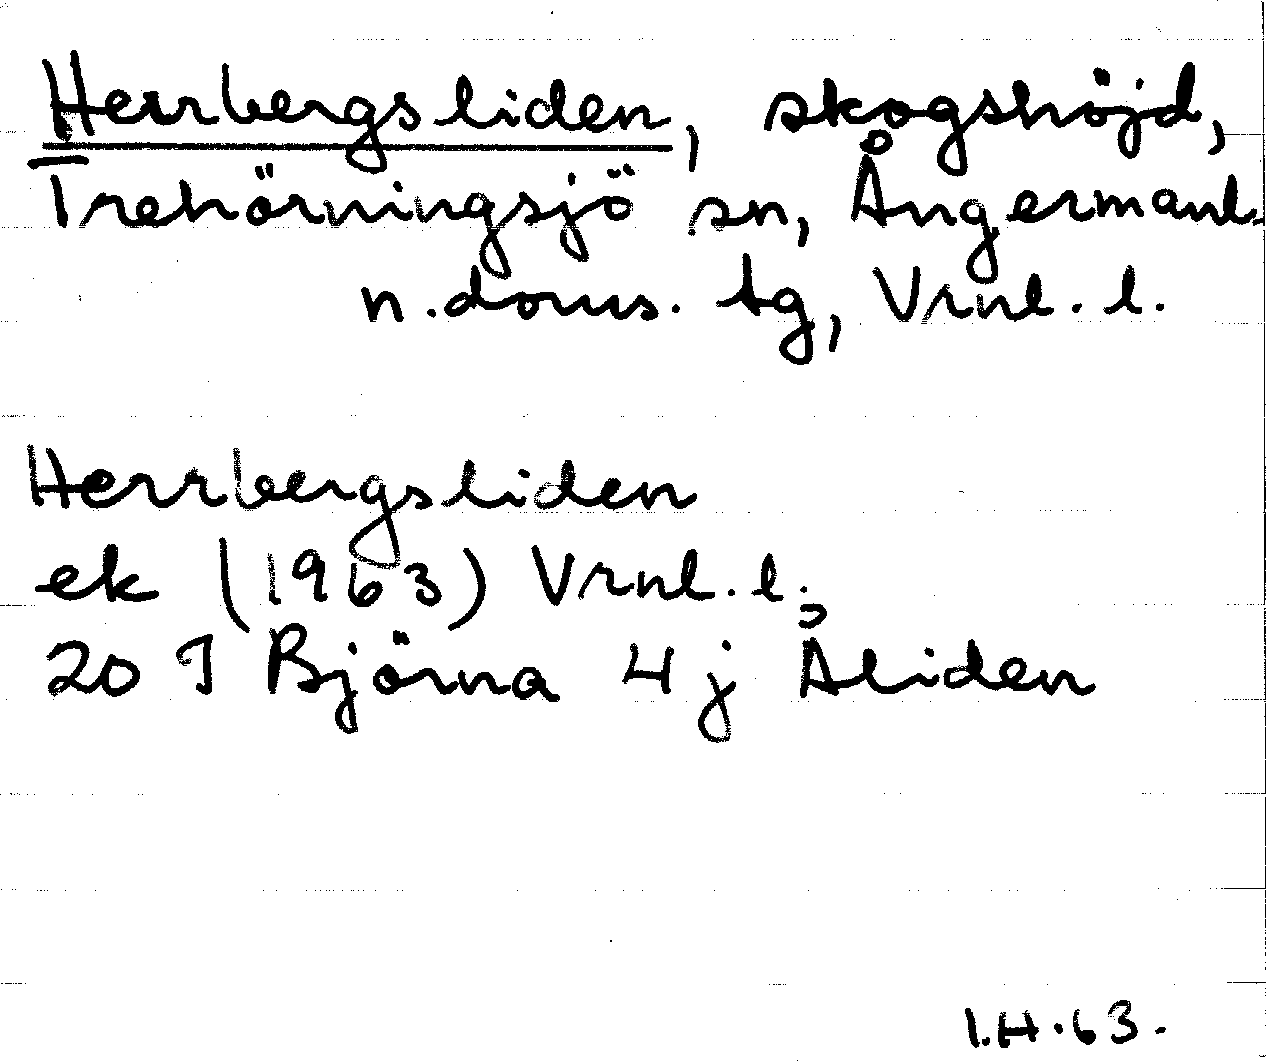 Herrbergsliden, skogshöjd,
Trehörningsjö sn, Ångermanl.
n. doms. tg, Vrnl. l.
Herrbergsliden
ek (1963) Vrnl. l.
20 I Björna 4 j Åliden
I.H. 63.